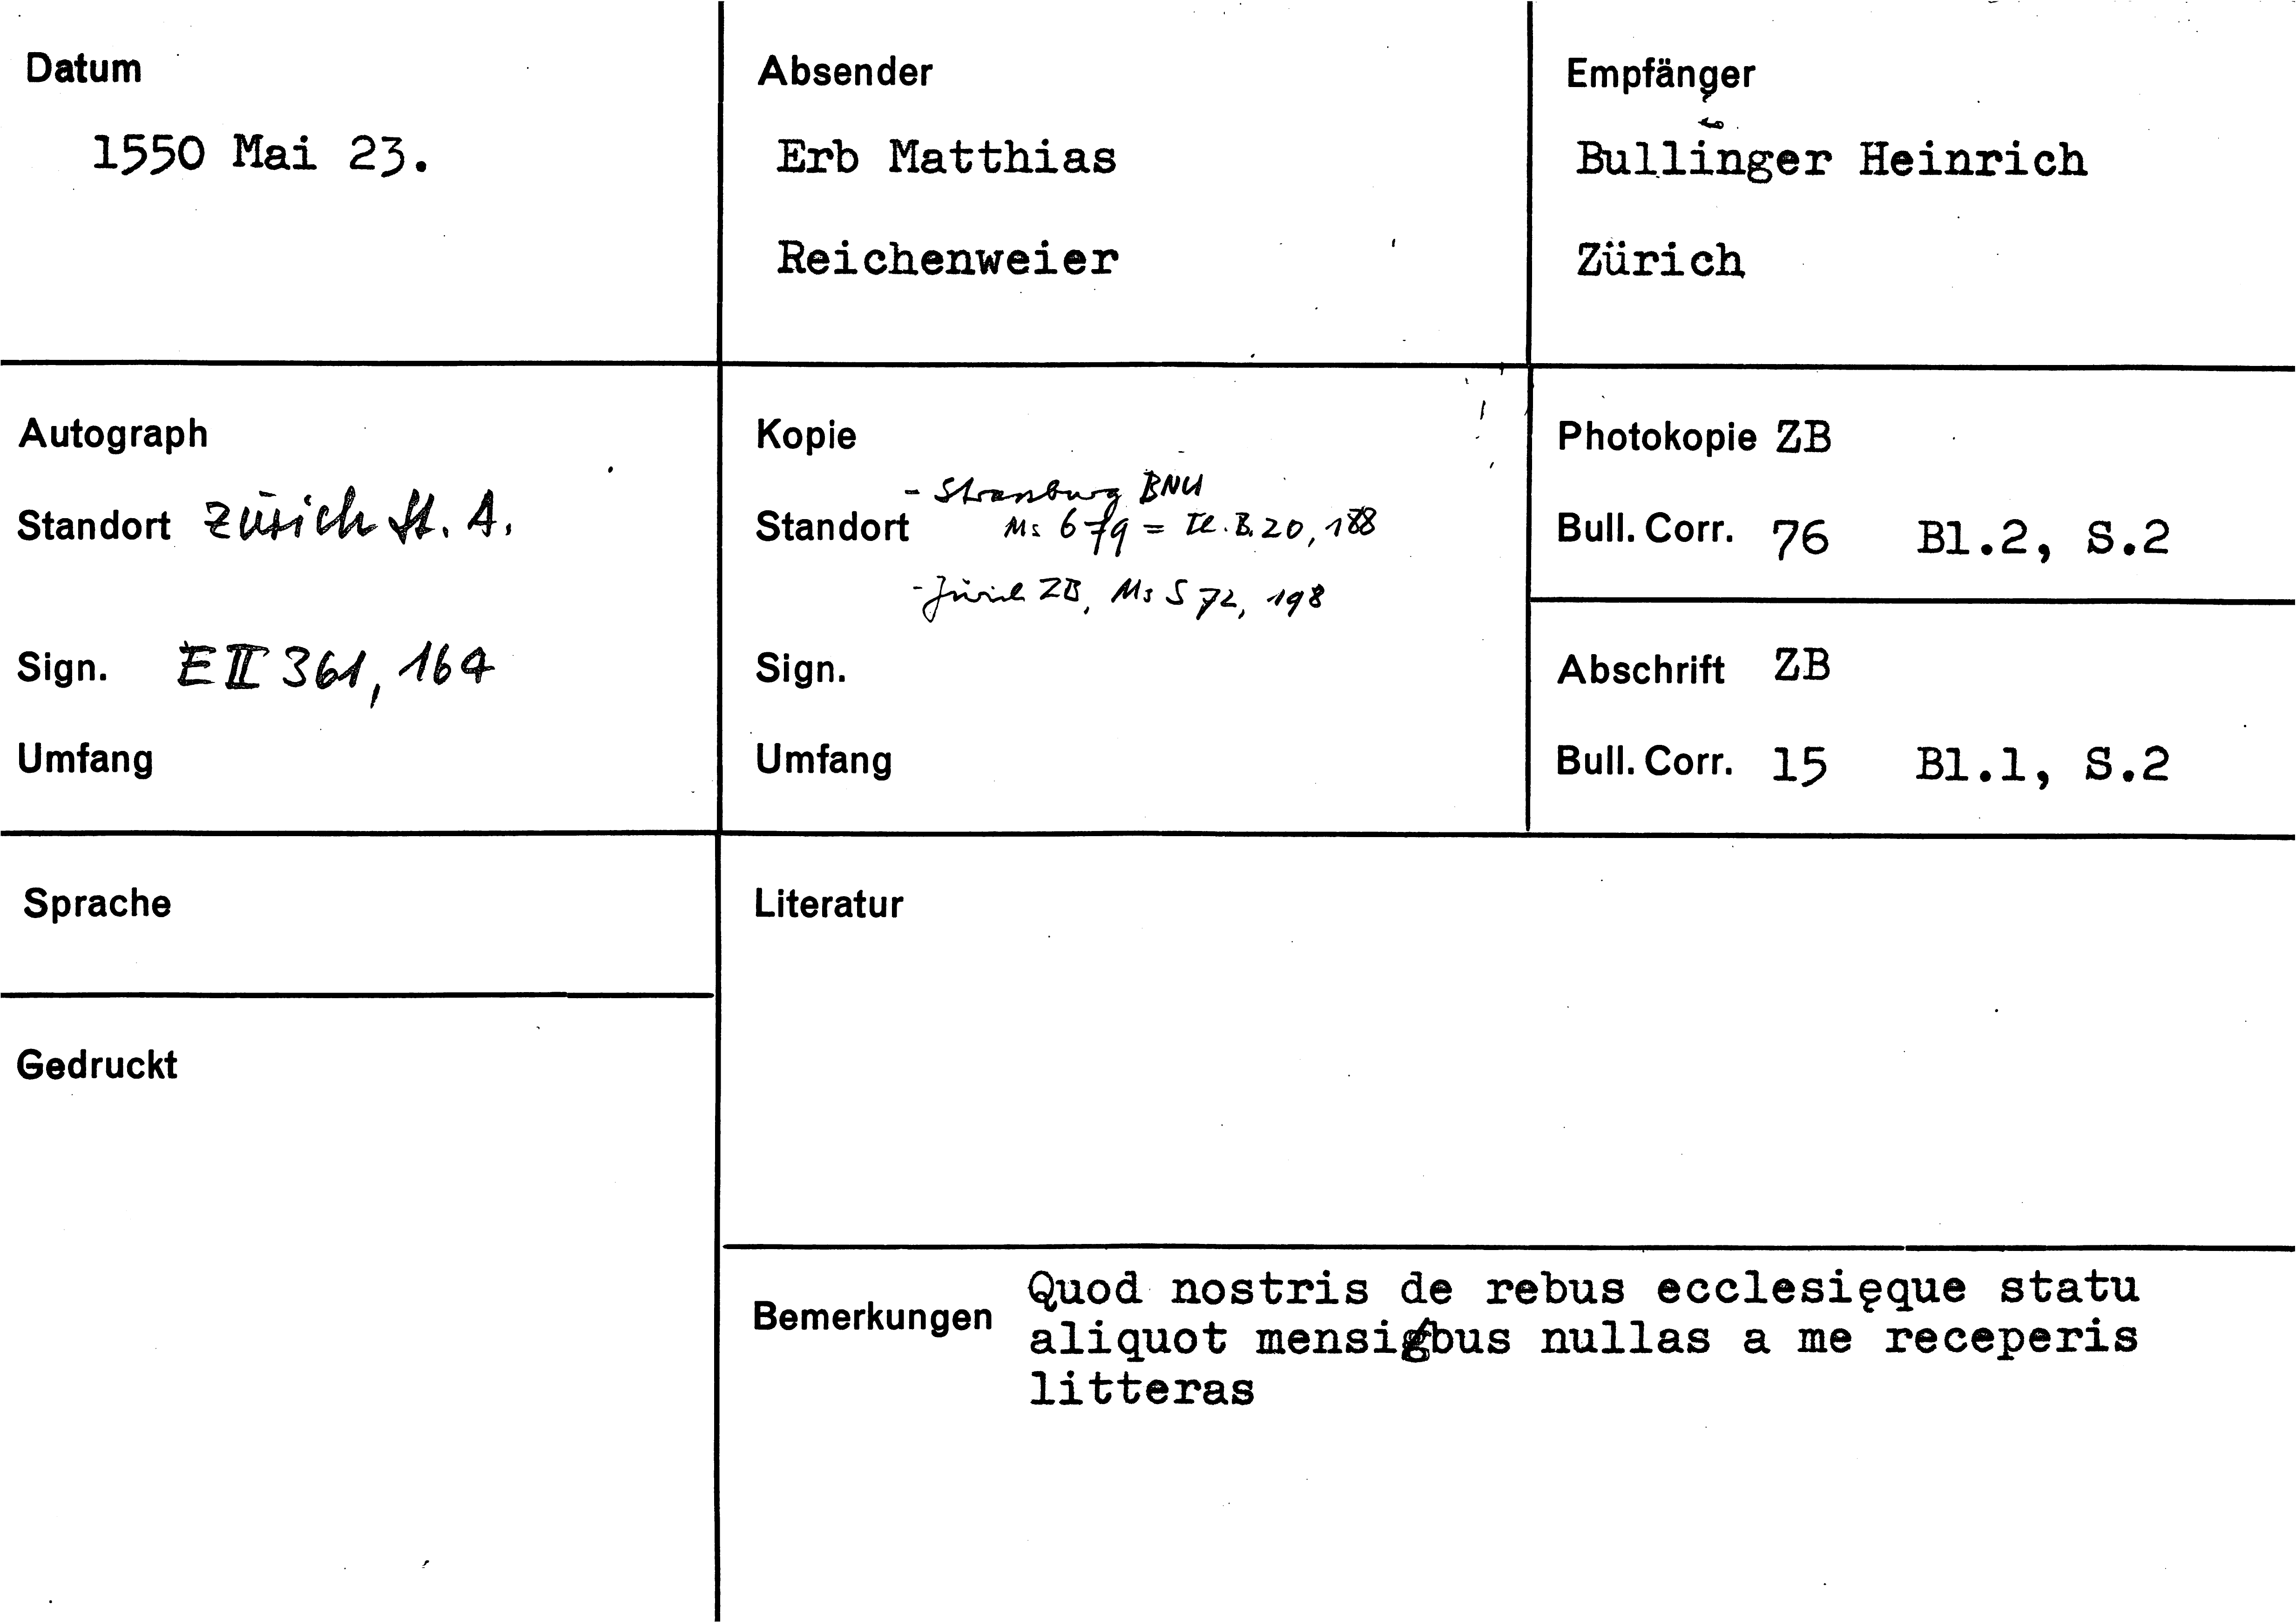 Datum
1550 Mai 23.
Absender
Erb Matthias
Reichenweier
Empfänger
Bullinger Heinrich
Zürich
Autograph
Standort Zürich St. A.
Sign. E II 361, 164
Umfang
Kopie
- Strassburg BNU
Standort Ms 679 = TB. B. 20, 188
- Zürich ZB, Ms S 72, 198
Sign.
Umfang
Photokopie ZB
Bull. Corr. 76 Bl.2, S.2
Abschrift ZB
Bull. Corr. 15 Bl.1, S.2
Sprache
Gedruckt
Literatur
Bemerkungen
Quod nostris de rebus ecclesięque statu
aliquot mensibus nullas a me receperis
litteras